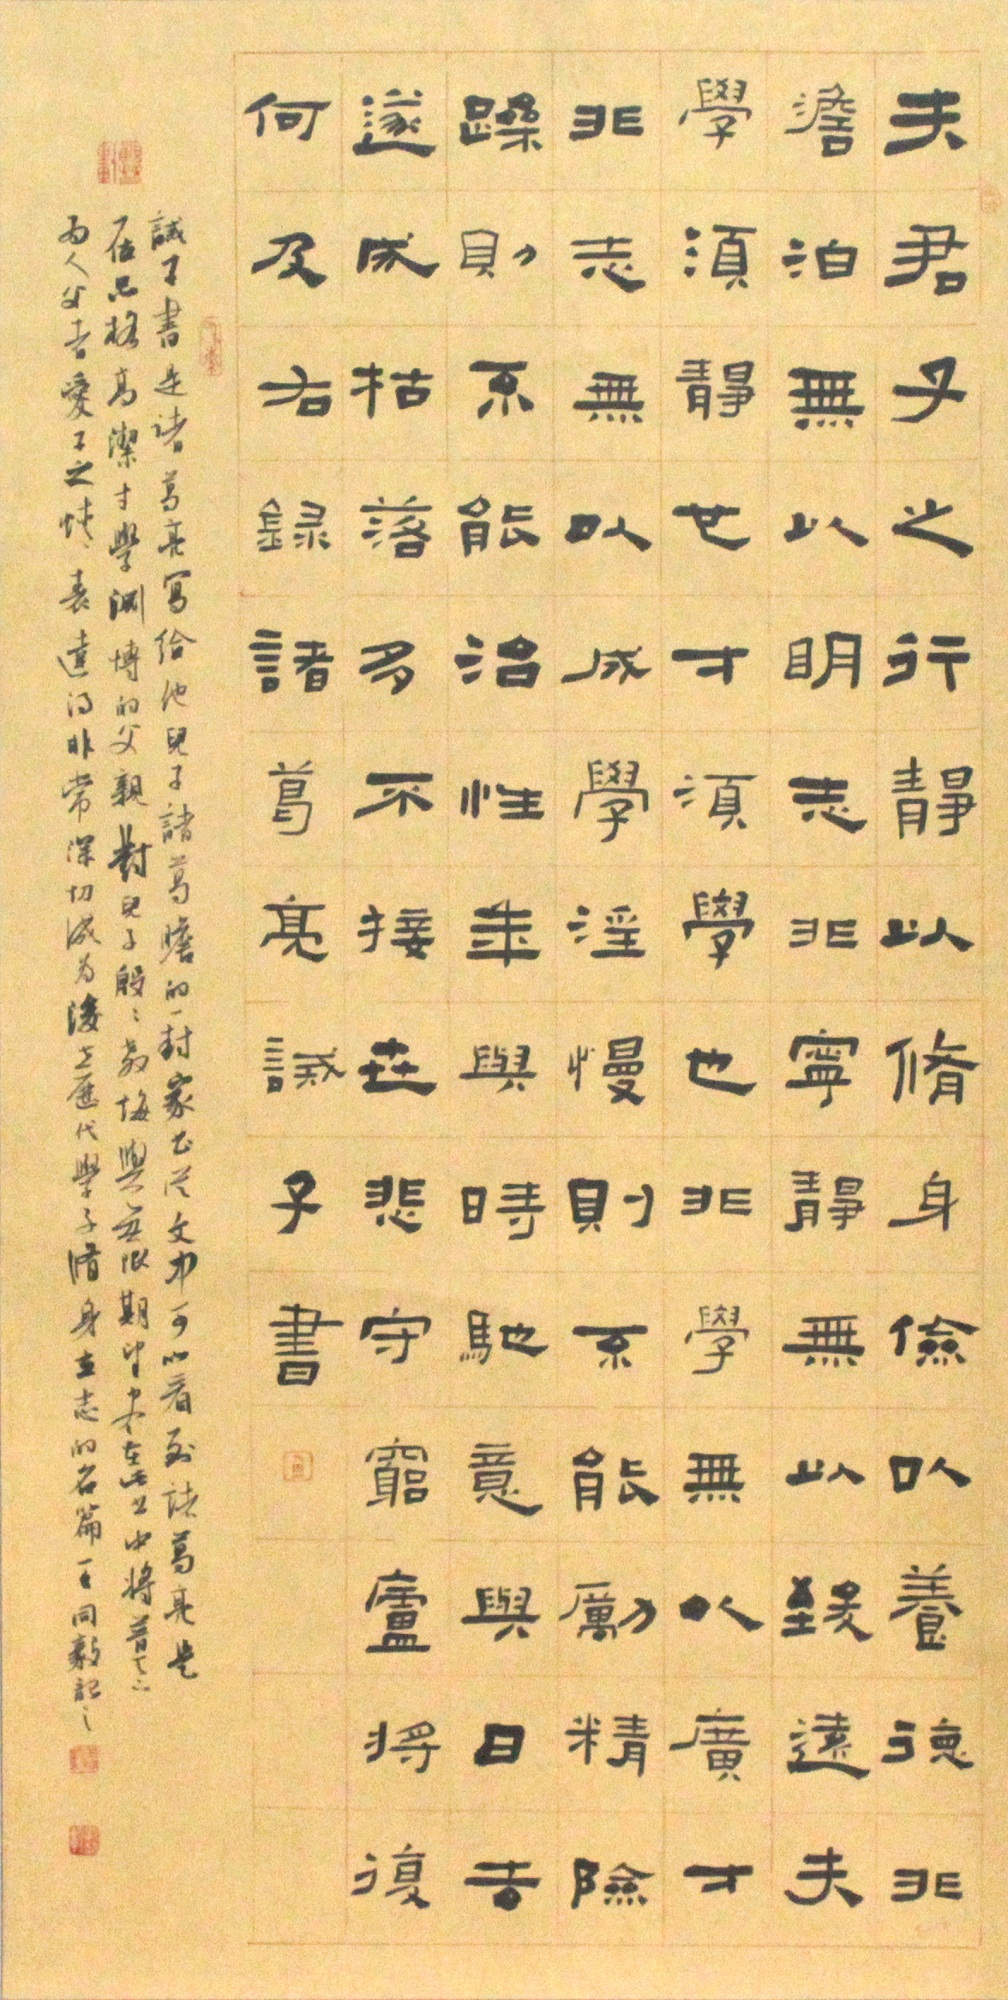 夫君子之行靜以脩身儉以養德非
澹泊無以明志非寧靜無以致遠夫
學須靜也才須學也非學無以廣才
非志無以成學淫慢則不能勵精險
躁則不能治性年與時馳意與日去
遂成枯落多不接世悲守窮廬將復
何及右錄諸葛亮誡子書
誡子書是諸葛亮寫給他兒子諸葛瞻的一封家書從文中可以看到諸葛亮是
一位品格高潔才學淵博的父親對兒子殷〻教誨與無限期望盡在此書中將普天下
為人父者愛子之情表達得非常深切成为後世歷代學子脩身立志的名篇王同毅記之